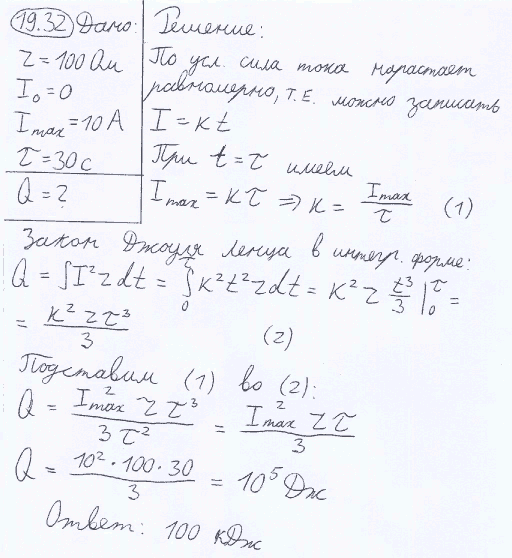 19.32 Дано: Решение:
r = 100 Ом
I₀ = 0
Imax = 10 А
τ = 30 с
Q = ?
По усл. сила тока нарастает
равномерно, т.е. можно записать
I = kt
При t = τ имеем
Imax = kτ ⇒ k = Imax/τ (1)
Закон Джоуля Ленца в интегр. форме:
Q = ∫I²rdt = ∫₀^τ k²t²rdt = k²r t³/3 |₀^τ =
= k²rτ³/3 (2)
Подставим (1) во (2):
Q = I²max r τ³/3τ² = I²max r τ/3
Q = 10²·100·30/3 = 10⁵ Дж
Ответ: 100 кДж